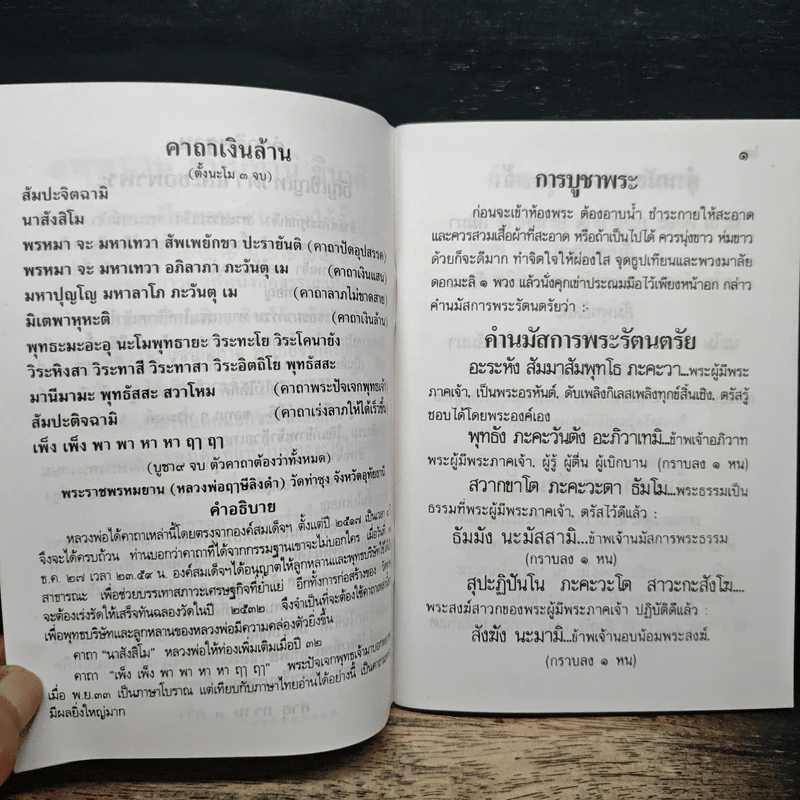 คาถาเงินล้าน
(ตั้งนะโม ๓ จบ)
สัมปะจิตฉามิ
นาสังสิโม
พรหมา จะ มหาเทวา สัพเพยักขา ปะรายันติ (คาถาปัดอุปสรรค)
พรหมา จะ มหาเทวา อภิลาภา ภะวันตุ เม (คาถาเงินแสน)
มหาปุญโญ มหาลาโภ ภะวันตุ เม (คาถาลาภไม่ขาดสาย)
มิเตพาหุหะติ (คาถาเงินล้าน)
พุทธะมะอะอุ นะโมพุทธายะ วิระทะโย วิระโคนายัง
วิระหิงสา วิระทาสี วิระทาสา วิระอิตถิโย พุทธัสสะ
มานีมามะ พุทธัสสะ สวาโหม (คาถาพระปัจเจกพุทธเจ้า)
สัมปะติจฉามิ (คาถาเร่งลาภให้ได้เร็วขึ้น)
เพ็ง เพ็ง พา พา หา หา ฤๅ ฤๅ
(บูชา๙ จบ ตัวคาถาต้องว่าทั้งหมด)
พระราชพรหมยาน (หลวงพ่อฤๅษีลิงดำ) วัดท่าซุง จังหวัดอุทัยธานี
คำอธิบาย
หลวงพ่อได้คาถาเหล่านี้โดยตรงจากองค์สมเด็จฯ ตั้งแต่ปี ๒๕๑๗ เป็นเวลา
จึงจะได้ครบถ้วน ท่านบอกว่าคาถาที่ได้จากกรรมฐานเขาจะไม่บอกใคร เมื่อวันที่
ธ.ค. ๒๗ เวลา ๒๓.๕๙ น. องค์สมเด็จฯได้อนุญาตให้ลูกหลานและพุทธบริษัท
สาธารณะ เพื่อช่วยบรรเทาสภาวะเศรษฐกิจที่ย่ำแย่ อีกทั้งการก่อสร้างของ
จะต้องเร่งรัดให้เสร็จทันฉลองวัดในปี ๒๕๓๒ จึงจำเป็นที่จะต้องใช้คาถา
เพื่อพุทธบริษัทและลูกหลานของหลวงพ่อมีความคล่องตัวยิ่งขึ้น
คาถา "นาสังสิโม" หลวงพ่อให้ท่องเพิ่มเติมเมื่อปี ๓๒
คาถา "เพ็ง เพ็ง พา พา หา หา ฤๅ ฤๅ" พระปัจเจกพุทธเจ้ามาบอก
เมื่อ พ.ย.๓๓ เป็นภาษาโบราณ แต่เทียบกับภาษาไทยอ่านได้อย่างนี้ เป็นคาถา
มีผลยิ่งใหญ่มาก
๑
การบูชาพระ
ก่อนจะเข้าห้องพระ ต้องอาบน้ำ ชำระกายให้สะอาด
และควรสวมเสื้อผ้าที่สะอาด หรือถ้าเป็นไปได้ ควรนุ่งขาว ห่มขาว
ด้วยก็จะดีมาก ทำจิตใจให้ผ่องใส จุดธูปเทียนและพวงมาลัย
ดอกมะลิ ๑ พวง แล้วนั่งคุกเข่าประณมมือไว้เพียงหน้าอก กล่าว
คำนมัสการพระรัตนตรัยว่า :-
คำนมัสการพระรัตนตรัย
อะระหัง สัมมาสัมพุทโธ ภะคะวา...พระผู้มีพระ
ภาคเจ้า, เป็นพระอรหันต์, ดับเพลิงกิเลสเพลิงทุกข์สิ้นเชิง, ตรัสรู้
ชอบได้โดยพระองค์เอง
พุทธัง ภะคะวันตัง อะภิวาเทมิ...ข้าพเจ้าอภิวาท
พระผู้มีพระภาคเจ้า, ผู้รู้ ผู้ตื่น ผู้เบิกบาน (กราบลง ๑ หน)
สวากขาโต ภะคะวะตา ธัมโม...พระธรรมเป็น
ธรรมที่พระผู้มีพระภาคเจ้า, ตรัสไว้ดีแล้ว :
ธัมมัง นะมัสสามิ...ข้าพเจ้านมัสการพระธรรม
(กราบลง ๑ หน)
สุปะฏิปันโน ภะคะวะโต สาวะกะสังโฆ....
พระสงฆ์สาวกของพระผู้มีพระภาคเจ้า ปฏิบัติดีแล้ว :
สังฆัง นะมามิ...ข้าพเจ้านอบน้อมพระสงฆ์.
(กราบลง ๑ หน)